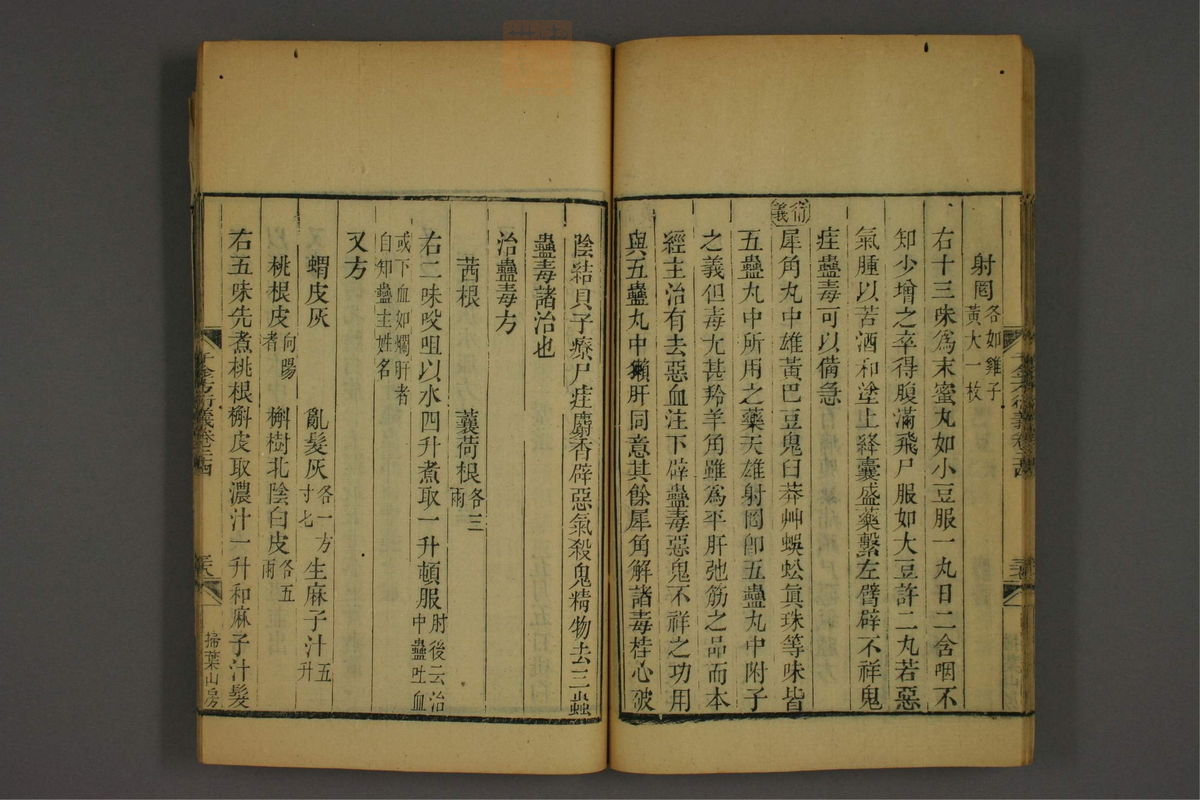 射罔各如雞子黃大一枚
右十三味爲末蜜丸如小豆服一丸日二含咽不
知少增之卒得腹滿飛尸服如大豆許二丸若惡
氣腫以苦酒和塗上絳囊盛藥繫左臂辟不祥鬼
疰蠱毒可以備急
衍義
犀角丸中雄黃巴豆鬼臼莽艸蜈蚣眞珠等味皆
五蠱丸中所用之藥天雄射罔卽五蠱丸中附子
之義但毒尤甚羚羊角雖爲平肝弛筋之品而本
經主治有去惡血注下辟蠱毒惡鬼不祥之功用
與五蠱丸中獺肝同意其餘犀角解諸毒桂心破
陰結貝子療尸疰麝香辟惡氣殺鬼精物去三蟲
蠱毒諸治也
治蠱毒方
茜根 蘘荷根各三兩
右二味㕮咀以水四升煮取一升頓服肘後云治中蠱吐血
或下血如爛肝者自知蠱主姓名
又方
蝟皮灰 亂髮灰各一方寸七 生麻子汁五升
桃根皮向陽者 槲樹北陰白皮各五兩
右五味先煮桃根槲皮取濃汁一升和麻子汁髮
千金方衍義卷二十四
掃葉山房